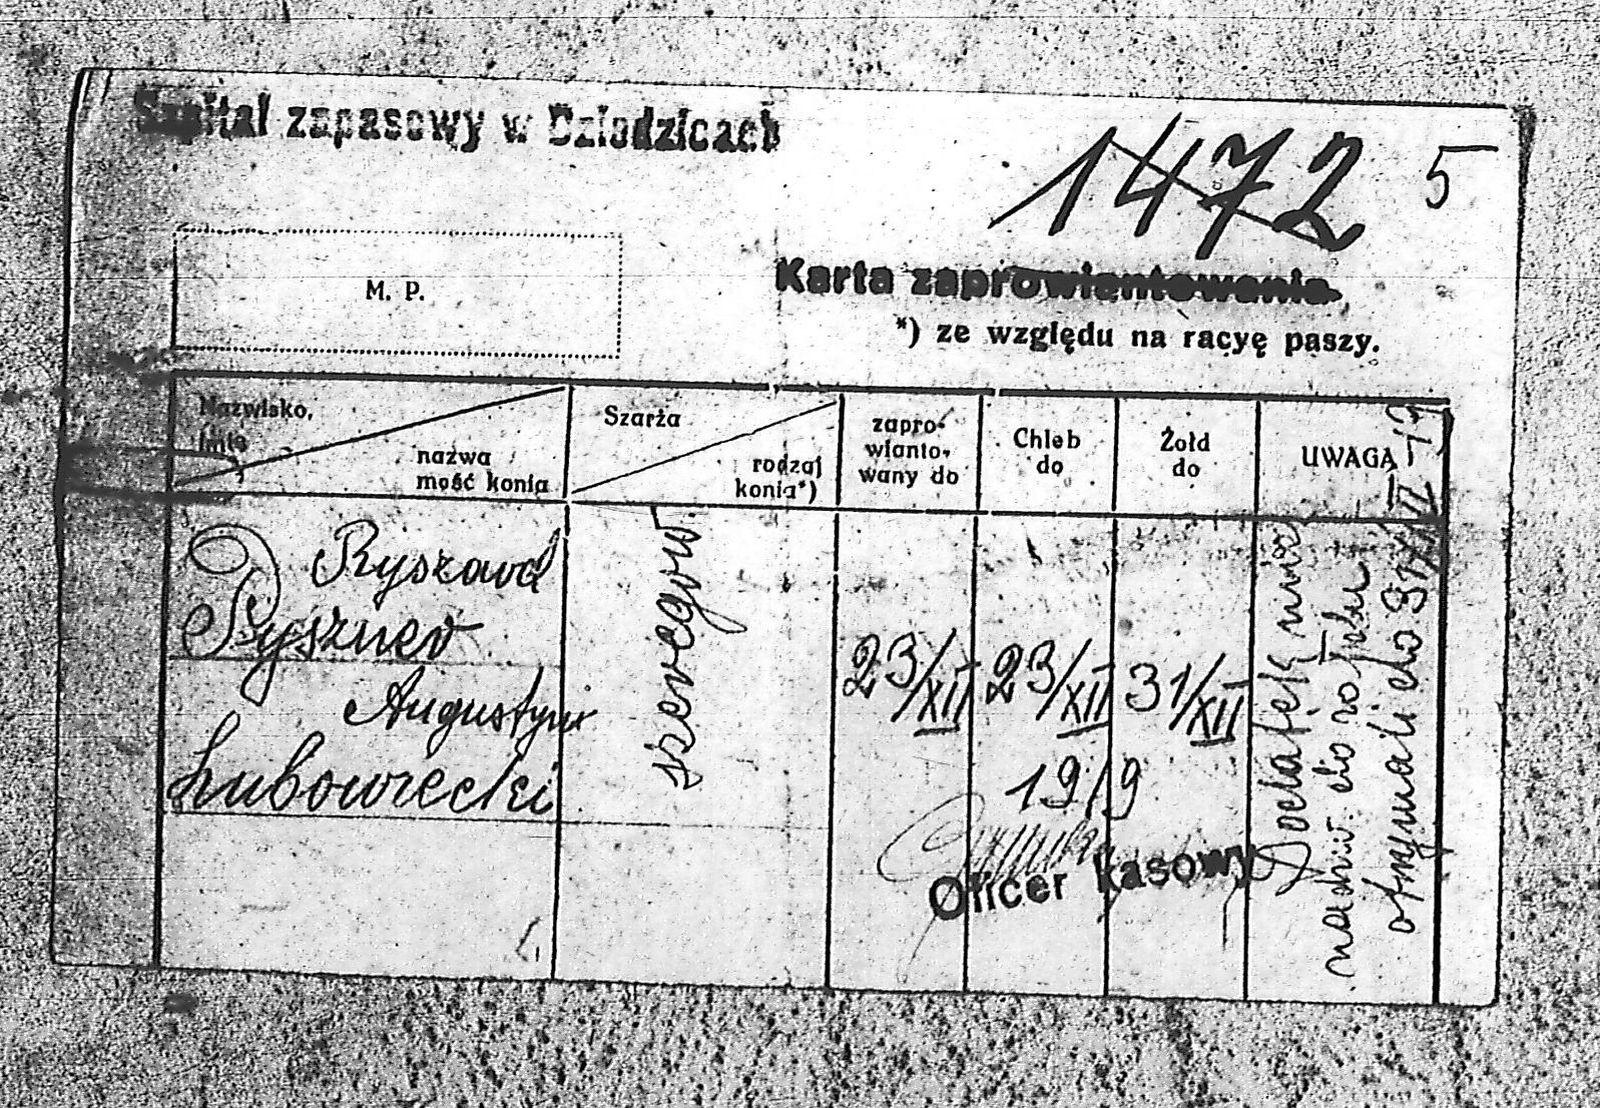 Szpital zapasowy w Dziedzicach
1472 5
M. P.
Karta zaprowiantowania.
*) ze względu na racyę paszy.
Nazwisko,
imię
nazwa
mość konia
Szarża
rodzaj
konia*)
zapro-
wianto-
wany do
Chleb
do
Żołd
do
UWAGA
Ryszard
Pyszner
Augustyn
Lubowiecki
szeregow.
23/XII
23/XII
31/XII
1919
Oficer kasowy
Dodatek
do
otrzymali do 31/XII 19